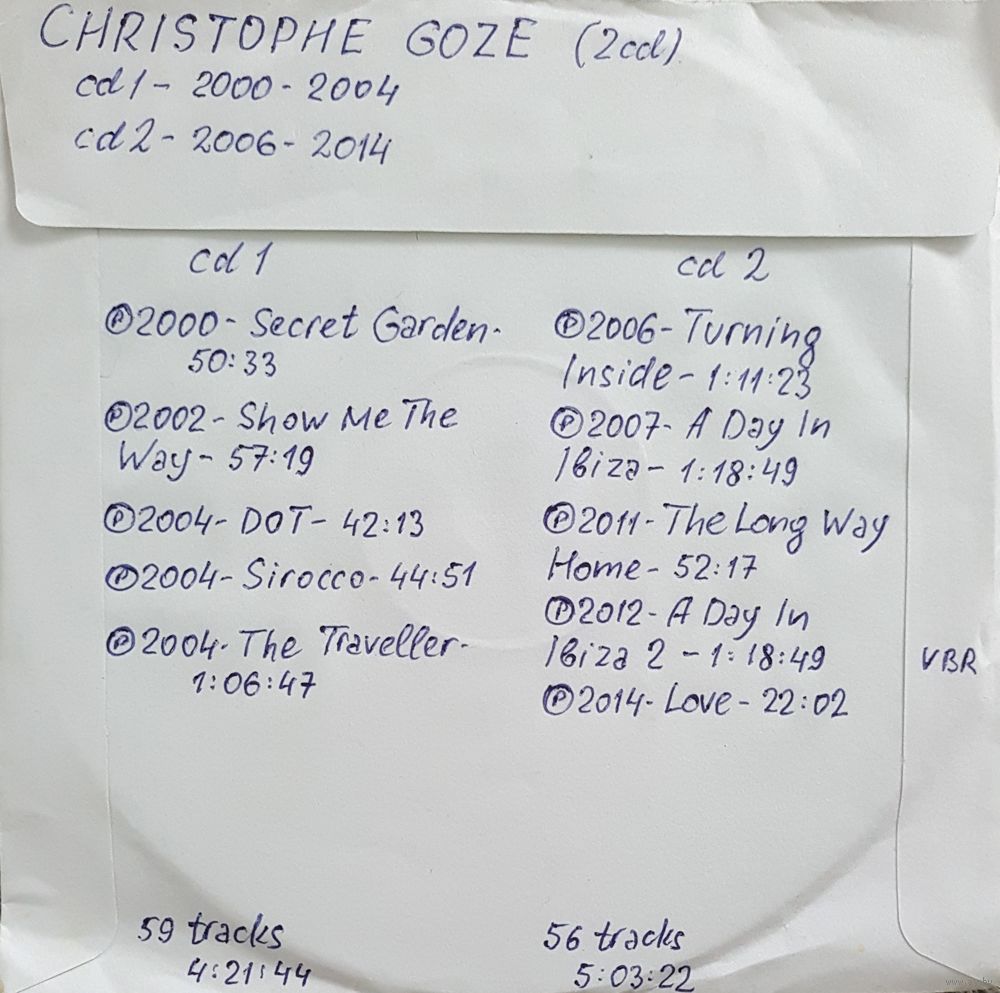 CHRISTOPHE GOZE (2cd)
cd1 - 2000 - 2004
cd2 - 2006 - 2014
cd 1
Ⓟ2000 - Secret Garden -
50:33
Ⓟ2002 - Show Me The
Way - 57:19
Ⓟ2004 - DOT - 42:13
Ⓟ2004 - Sirocco - 44:51
Ⓟ2004 - The Traveller -
1:06:47
59 tracks
4:21:44
cd 2
Ⓟ2006 - Turning
Inside - 1:11:23
Ⓟ2007 - A Day In
Ibiza - 1:18:49
Ⓟ2011 - The Long Way
Home - 52:17
Ⓟ2012 - A Day In
Ibiza 2 - 1:18:49
Ⓟ2014 - Love - 22:02
56 tracks
5:03:22
VBR